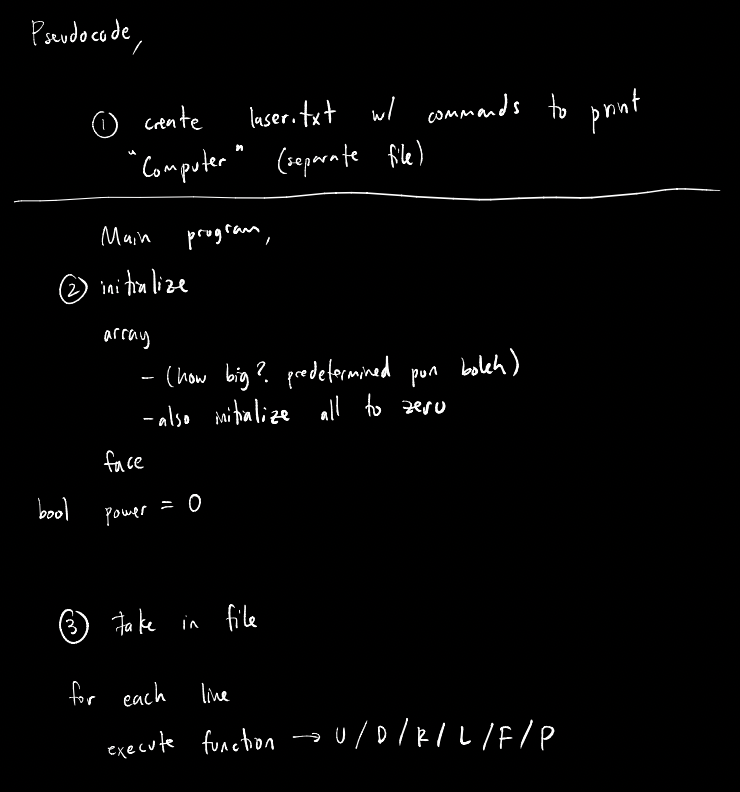 Pseudocode,
① create laser.txt w/ commands to print
"Computer" (separate file)
Main program,
② initialize
array
- (how big? predetermined pun boleh)
- also initialize all to zero
face
bool power = 0
③ take in file
for each line
execute function → U/D/R/L/F/P